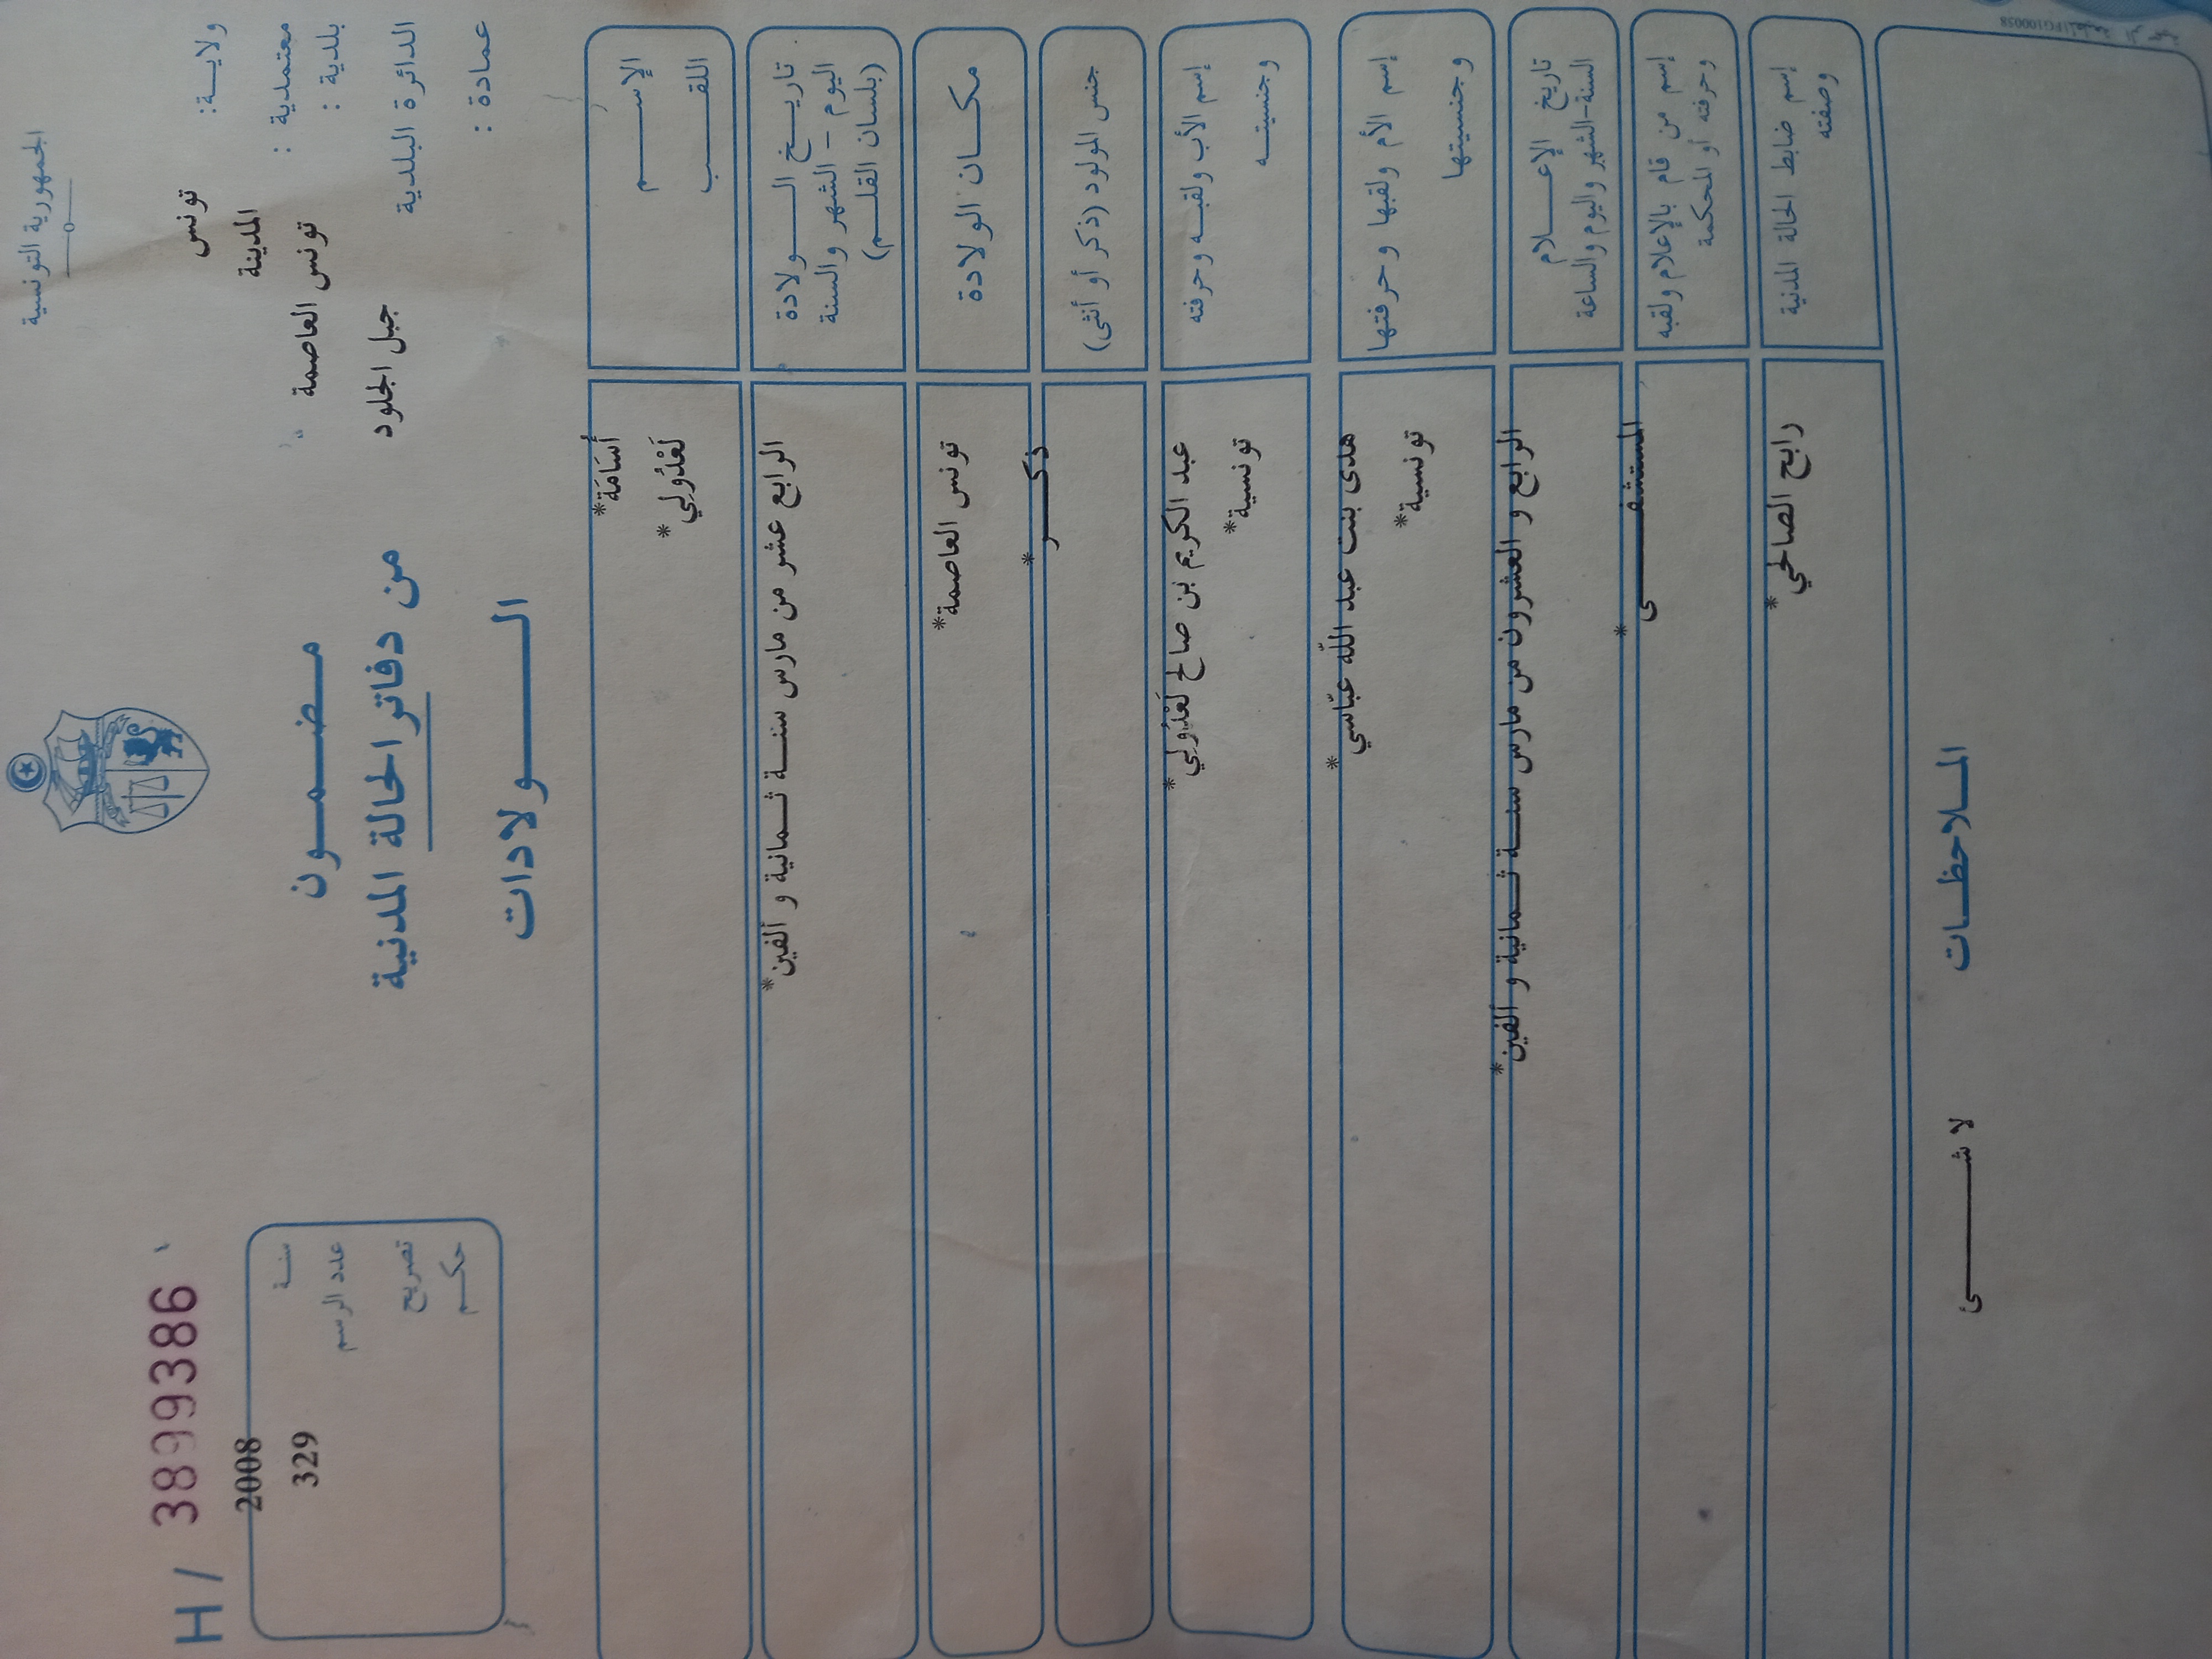 الجمهورية التونسية
ولايــة: تونس
معتمدية : المدينة
بلدية : تونس العاصمة
الدائرة البلدية جبل الجلود
عمادة :
مـضـمـــون
من دفاتر الحالة المدنية
الـــــولادات
H / 3899386
سنـة 2008
عدد الرسم 329
تصريح
حكـم
الإســـــم أُسَامَة*
اللقـــــب لَعْدُولِي*
تاريــخ الـــــولادة
اليوم - الشهر والسنة
(بلسان القلـــم)
الرابع عشر من مارس سنــة ثــمانية و ألفين*
مكــان الولادة تونس العاصمة*
جنس المولود (ذكر أو أنثى) ذكـــــر*
إسم الأب ولقبــه وحرفته عبد الكريم بن صالح لَعْدُولِي*
وجنسيتــه تونسية*
إسم الأم ولقبها وحرفتها هدى بنت عبد الله عبّاسي*
وجنسيتها تونسية*
تاريخ الإعـــلام
السنة-الشهر واليوم والساعة
الرابع و العشرون من مارس سنــة ثــمانية و ألفين*
إسم من قام بالإعلام ولقبه
وحرفته أو المحكمة
المستشفـــــــى*
إسم ضابط الحالة المدنية
وصفته
رابح الصالحي*
المـلاحظـات
لا شـــــــئ